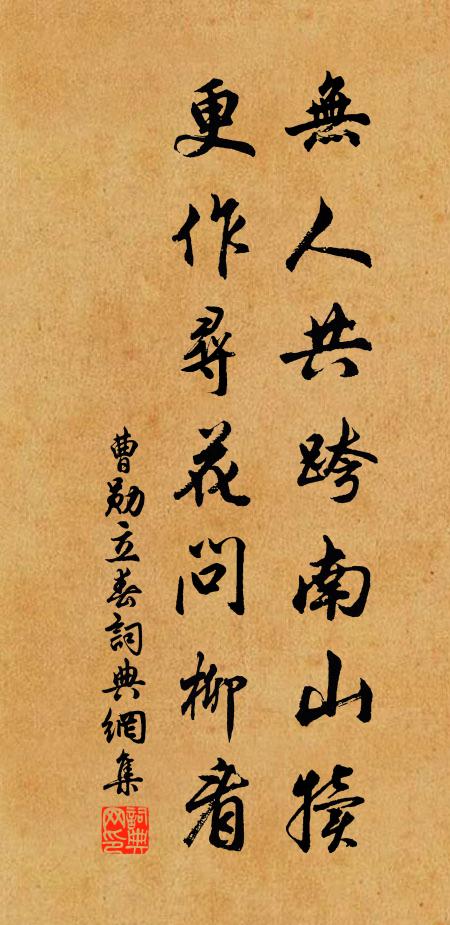 無人共跨南山犢
更作尋花問柳看
曹勛立春詞典網集
詞典網印